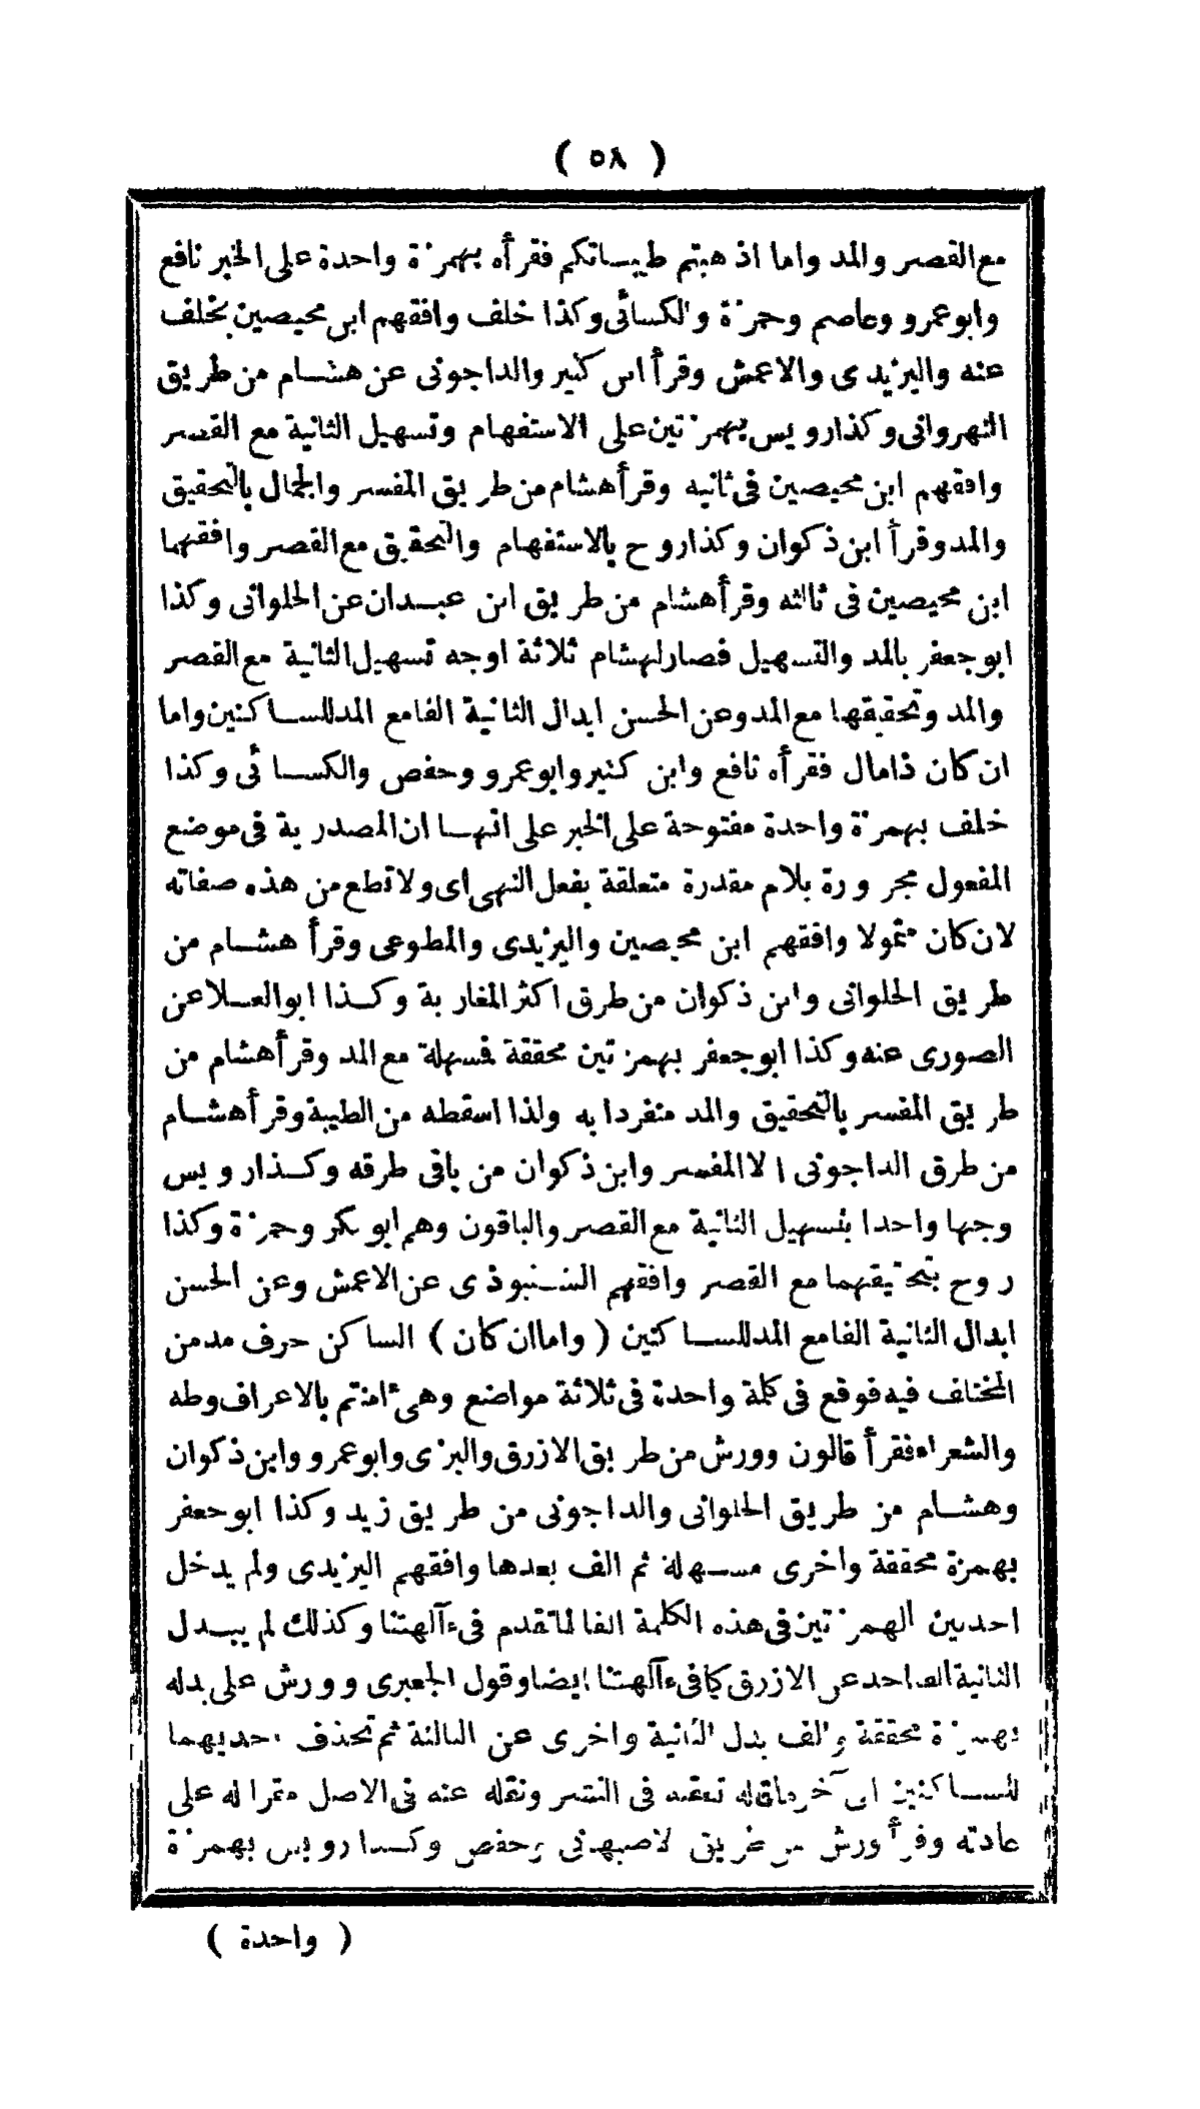 ( ٥٨ )
مع القصر والمد واما اذهبتم طيباتكم فقرأه بهمزة واحدة على الخبر نافع
وابو عمرو وعاصم وحمزة والكسائى وكذا خلف وافقهم ابن محيصين بخلف
عنه واليزيدى والاعمش وقرأ ابن كثير والداجونى عن هشام من طريق
النهروانى وكذا رويس بهمزتين على الاستفهام وتسهيل الثانية مع القصر
وافقهم ابن محيصين فى ثانيه وقرأ هشام من طريق المفسر والجمال بالتحقيق
والمد وقرأ ابن ذكوان وكذا روح بالاستفهام والتحقيق مع القصر وافقهما
ابن محيصين فى ثالثه وقرأ هشام من طريق ابن عبدان عن الحلوانى وكذا
ابو جعفر بالمد والتسهيل فصار لهشام ثلاثة اوجه تسهيل الثانية مع القصر
والمد وتحقيقها مع المد وعن الحسن ابدال الثانية الفا مع المد للساكنين واما
ان كان ذامال فقرأه نافع وابن كثير وابو عمرو وحفص والكسائى وكذا
خلف بهمزة واحدة مفتوحة على الخبر على انها ان المصدرية فى موضع
المفعول مجرورة بلام مقدرة متعلقة بفعل النهى اى ولا تطع من هذه صفاته
لان كان متمولا وافقهم ابن محيصين واليزيدى والمطوعى وقرأ هشام من
طريق الحلوانى وابن ذكوان من طرق اكثر المغاربة وكذا ابو العلا عن
الصورى عنه وكذا ابو جعفر بهمزتين محققة فمسهلة مع المد وقرأ هشام من
طريق المفسر بالتحقيق والمد منفردا به ولذا اسقطه من الطيبة وقرأ هشام
من طرق الداجونى الا المفسر وابن ذكوان من باقى طرقه وكذا رويس
وجها واحدا بتسهيل الثانية مع القصر والباقون وهم ابو بكر وحمزة وكذا
روح بتحقيقهما مع القصر وافقهم الشنبوذى عن الاعمش وعن الحسن
ابدال الثانية الفا مع المد للساكنين ( واما ان كان ) الساكن حرف مد من
المختلف فيه فوقع فى كلمة واحدة فى ثلاثة مواضع وهى ءامنتم بالاعراف وطه
والشعراء فقرأ قالون وورش من طريق الازرق والبزى وابو عمرو وابن ذكوان
وهشام من طريق الحلوانى والداجونى من طريق زيد وكذا ابو جعفر
بهمزة محققة واخرى مسهلة ثم الف بعدها وافقهم اليزيدى ولم يدخل
احد بين الهمزتين فى هذه الكلمة الفا لما تقدم فى ءآلهتنا وكذلك لم يبدل
الثانية الفا احد عن الازرق كما فى ءآلهتنا ايضا وقول الجعبرى وورش على بدله
بهمزة محققة والف بدل الثانية واخرى عن الثالثة ثم تحذف احديهما
للساكنين الى آخر ما قاله تعقبه فى النشر ونقله عنه فى الاصل مقرا له على
عادته وقرأ ورش من طريق الاصبهانى وحفص وكذا رويس بهمزة
( واحدة )